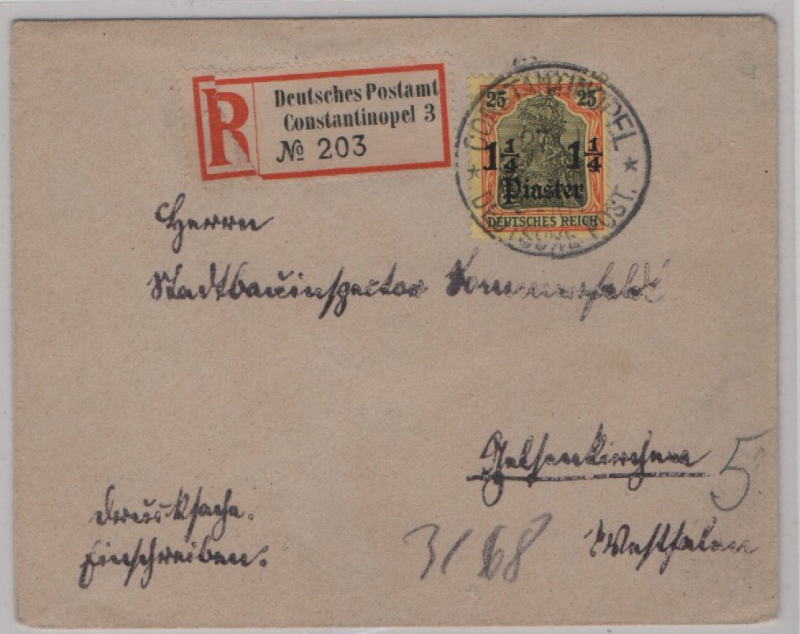 R
Deutsches Postamt
Constantinopel 3
№ 203
CONSTANTINOPEL
25 25
1 1/4 1 1/4
Piaster
DEUTSCHES REICH
* DEUTSCHE POST. *
Herrn
Stadtbauinspector Sommerfeldt
Gelsenkirchen
5
Westfalen
Drucksache.
Einschreiben.
3/68